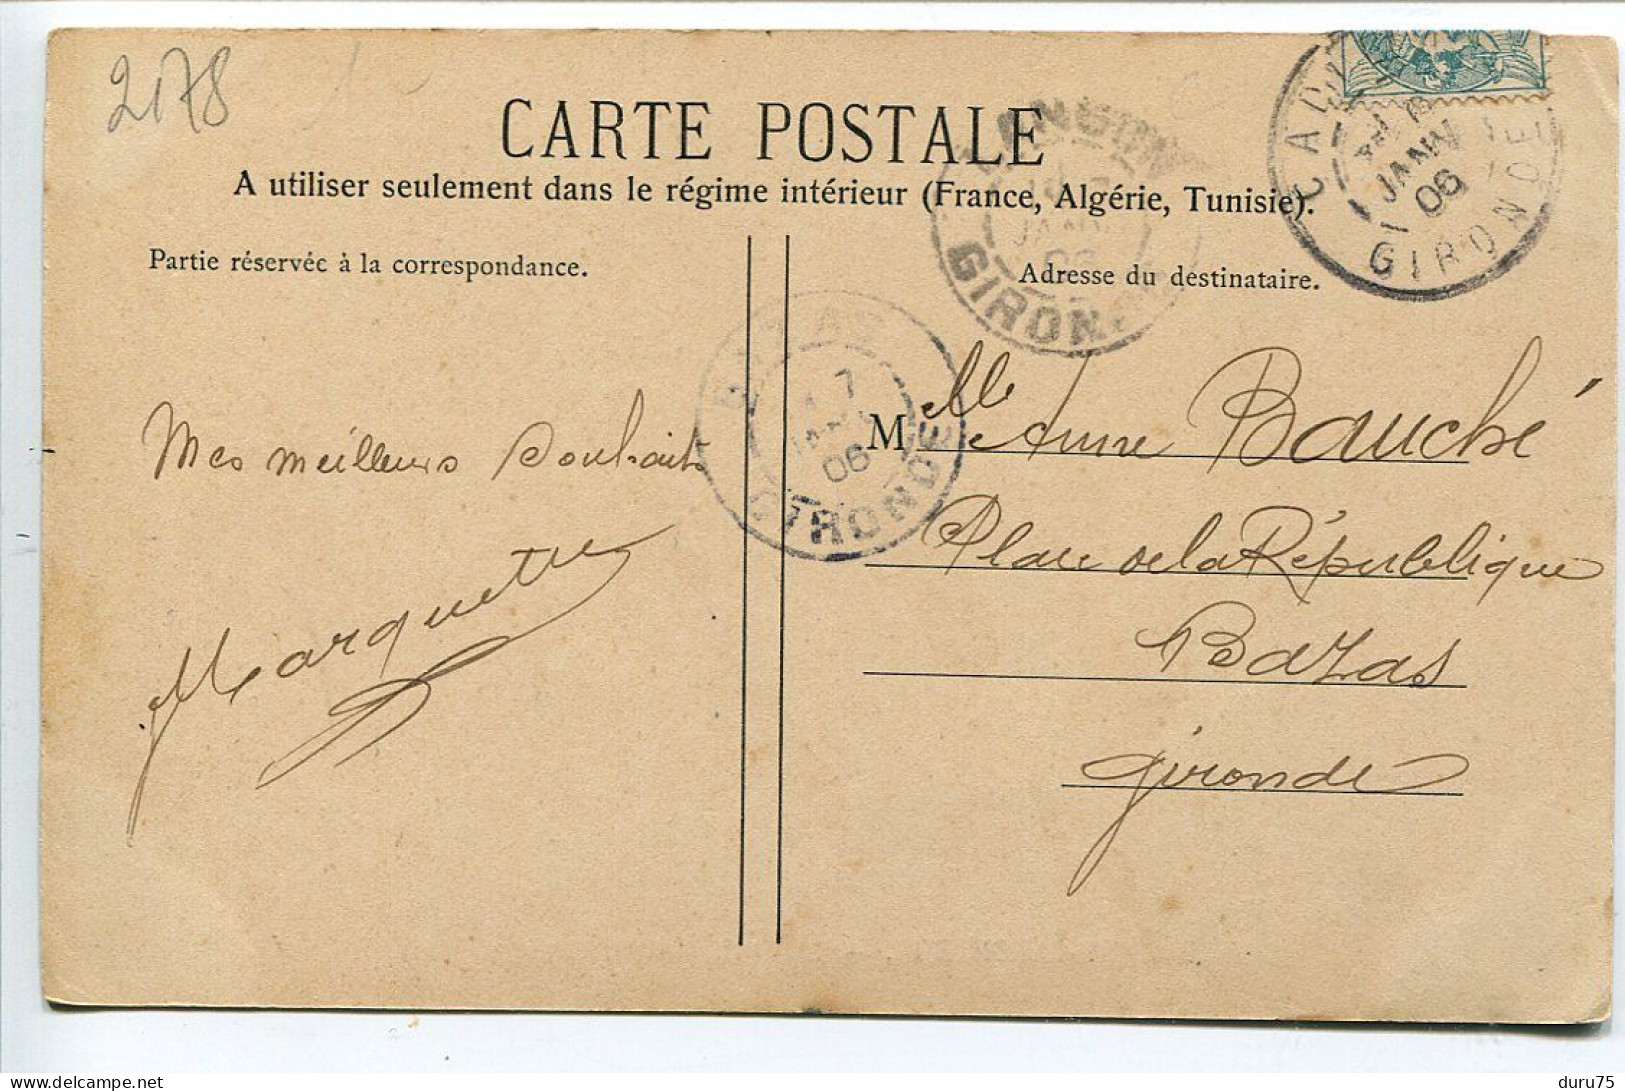 2178
CARTE POSTALE
A utiliser seulement dans le régime intérieur (France, Algérie, Tunisie).
Partie réservée à la correspondance.
Adresse du destinataire.
GIRONDE
JANV
06
GIRON
7
06
GIRONDE
Mes meilleurs Souhaits
Marquette
Mlle Anne Bauché
Place de la République
Bazas
Gironde
delcampe.net
duru75